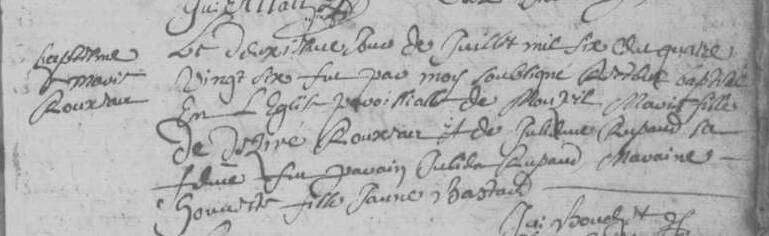 baptesme
marie
Rouxeau
Le deuxiesme Jour de Juillet mil six cent quatre
Vingt six fut par moy soubsigné Recteur baptisé
En L'Eglise paroissialle de Marie fille
de Rouxeau et de Julienne Rupaud sa
feme fut parain Julien Rupaud Maraine
honneste fille Janne Bastard